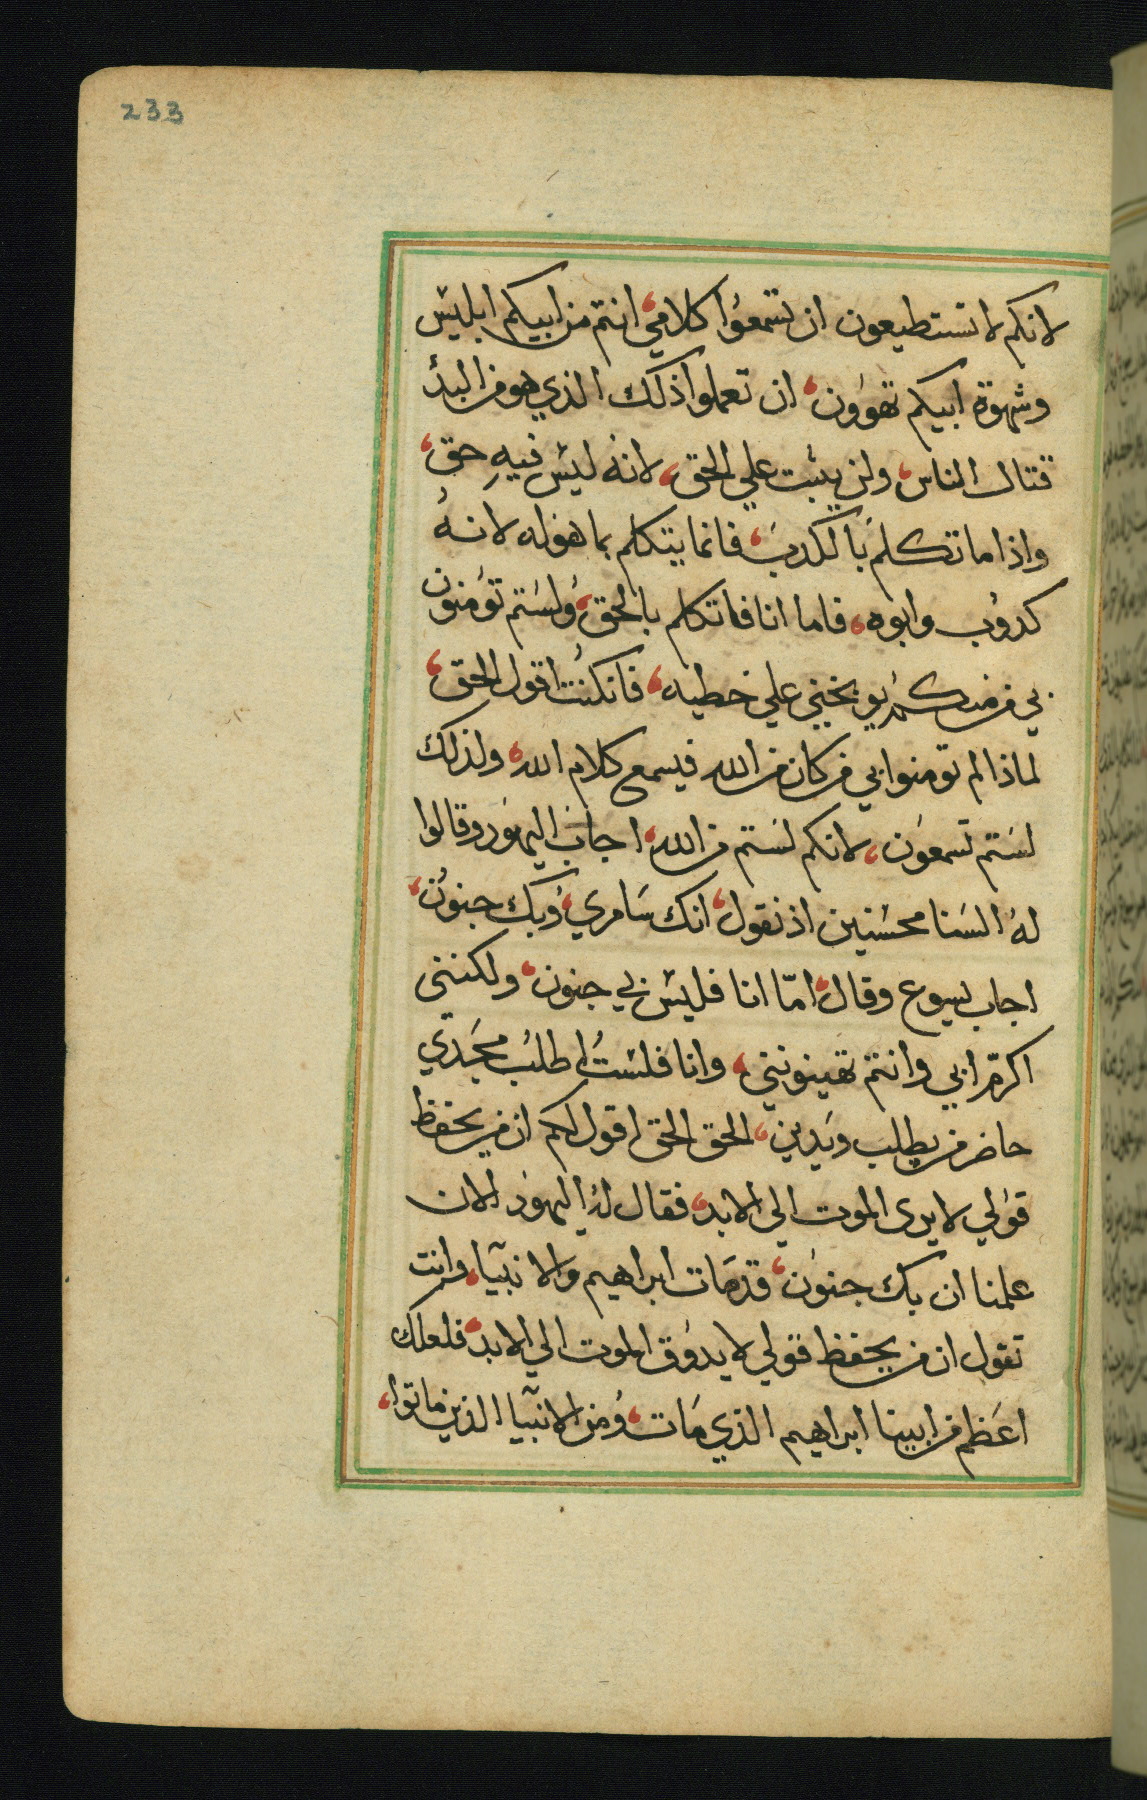 233
لانكم لا تستطيعون ان تسمعوا كلامي، انتم من ابيكم ابليس
وشهوة ابيكم تهوون، ان تعملوا ذلك الذي هو من البدأ
قتال الناس، ولن يثبت علي الحق، لانه ليس فيه حق،
واذا ما تكلم بالكدب، فانما يتكلم بما هو له لانه
كدوب وابوه، فاما انا فاتكلم بالحق، ولستم تؤمنون
بي من منكم يوبخني علي خطيه، فان كنت اقول الحق،
لماذا لم تومنوا بي من كان من الله فيسمع كلام الله، ولذلك
لستم تسمعون، لانكم لستم من الله، اجاب اليهود وقالوا
له السنا محسنين اذ نقول، انك سامري، وبك جنون،
اجاب يسوع وقال، امّا انا فليس بي جنون، ولكنني
اكرّم ابي وانتم تهينونني، وانا فلست اطلب مجدي
حاضر من يطلب ويدين، الحق الحق اقول لكم ان من يحفظ
قولي لا يرى الموت الي الابد، فقال له اليهود الان
علمنا ان بك جنون، قد مات ابراهيم والانبيآ، وانت
تقول ان من يحفظ قولي لا يدوق الموت الي الابد، فلعلك
اعظم من ابينا ابراهيم الذي مات، ومن الانبيآ الذين ماتوا،